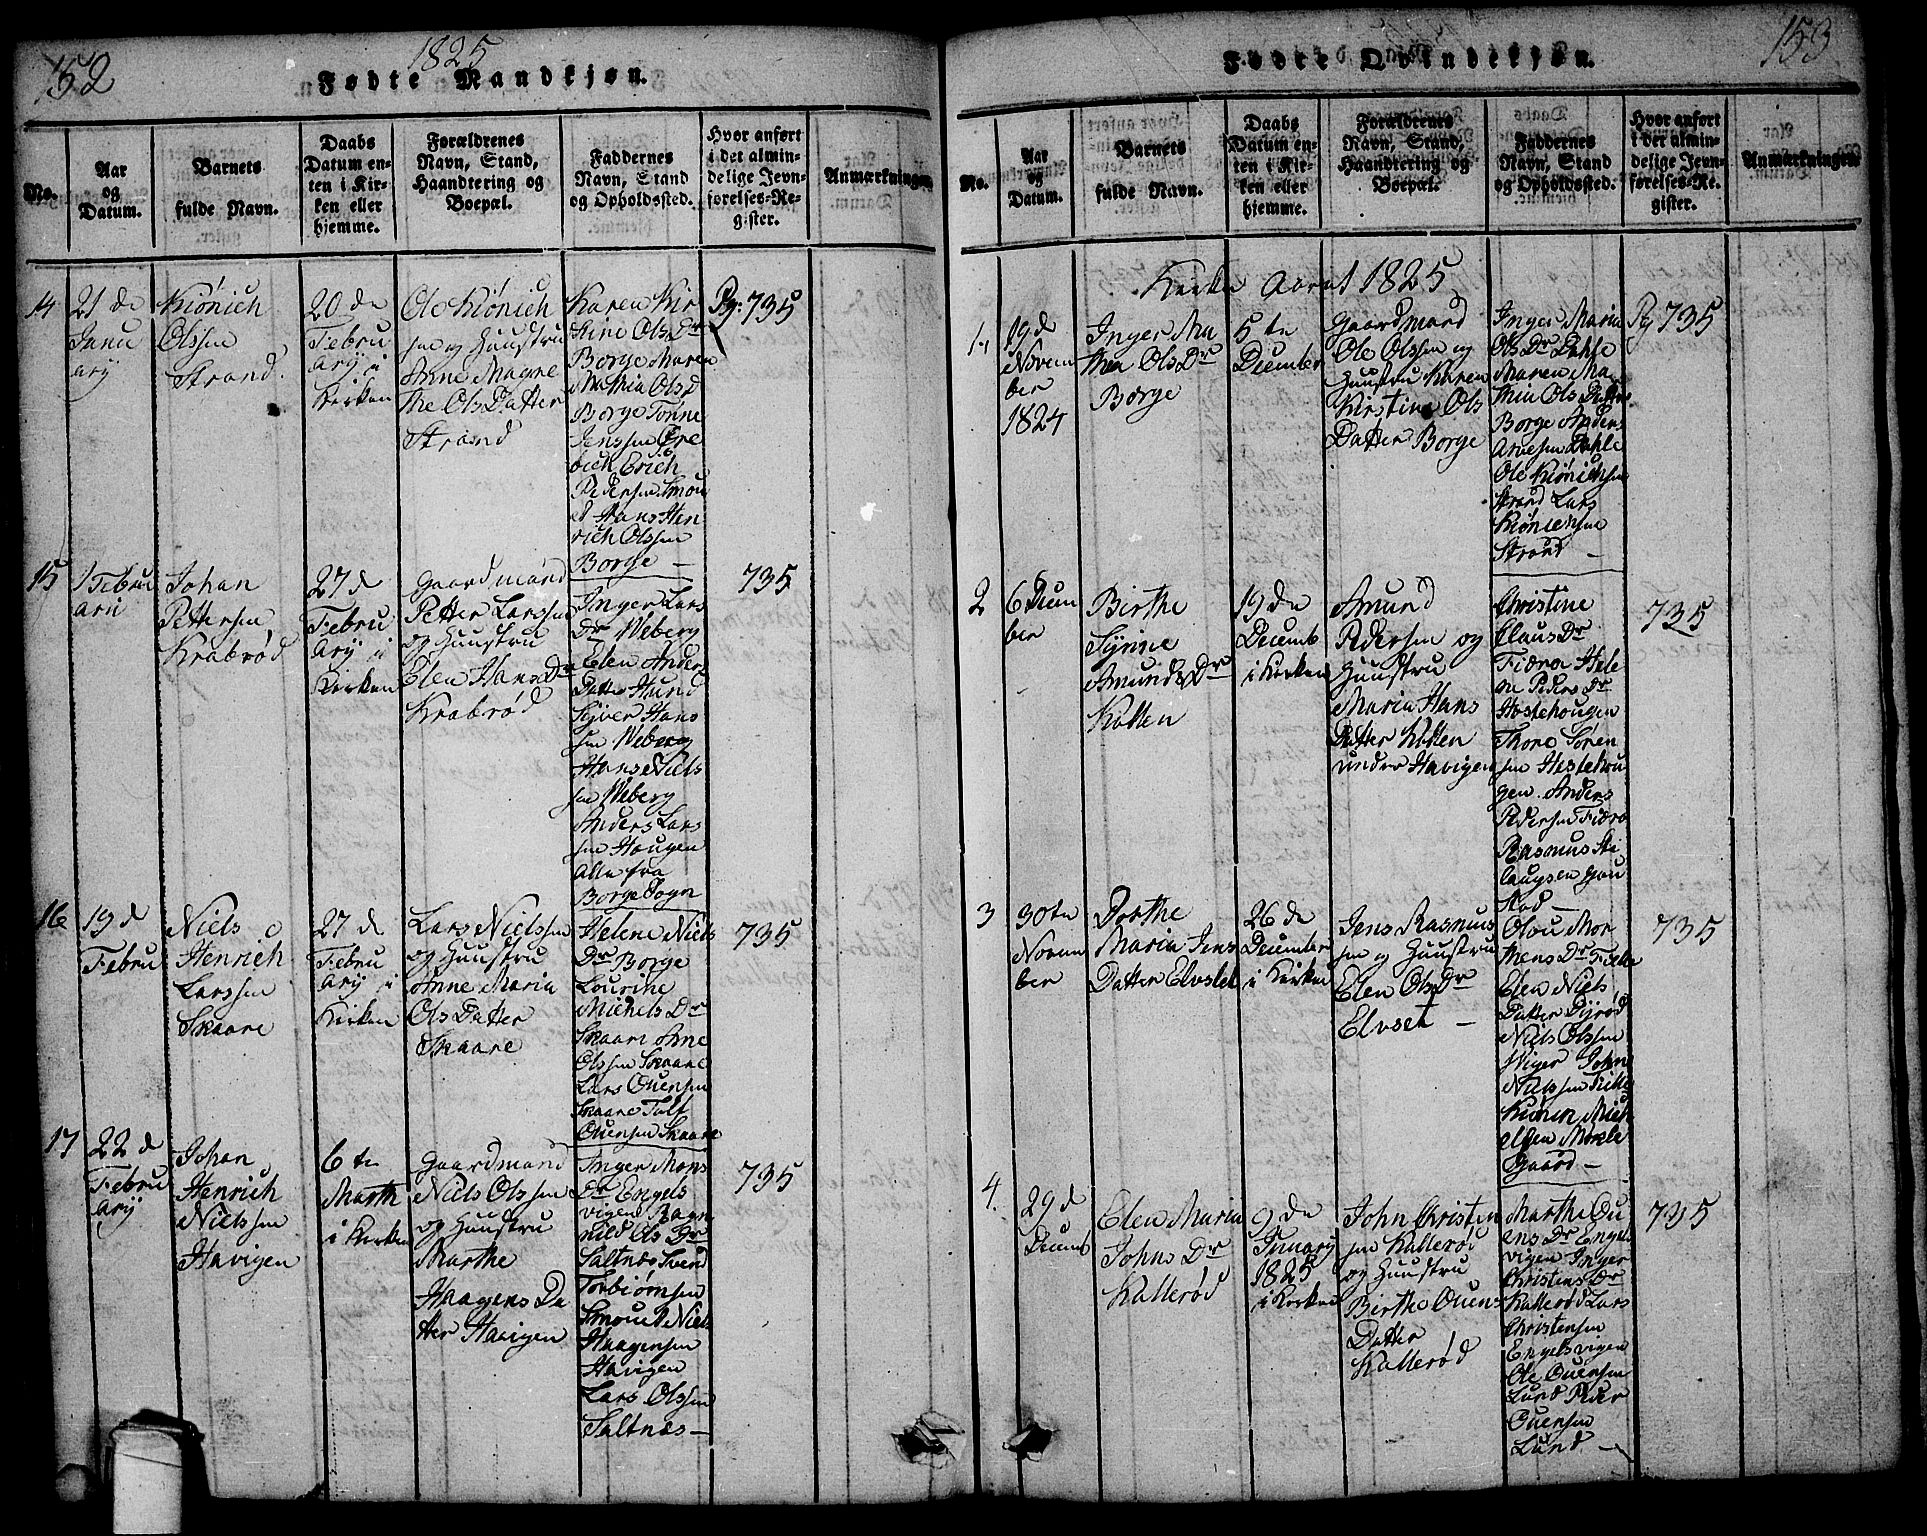 152
1825
Fødte Mandkjøn.
No.
Aar
og
Datum.
Barnets
fulde Navn.
Daabs
Datum en-
ten i Kir-
ken eller
hjemme.
Forældrenes
Navn, Stand,
Haandtering og
Boepæl.
Faddernes
Navn, Stand
og Opholdssted.
Hvor anført
i det almin-
delige Jevn-
førelses-Re-
gister.
Anmærkninger
14
21 de
Janu
ary
Kiönich
Olssen
Strand
20 de
Febru
ary i
Kirken
Ole Kiönich
sen og Huustru
Anne Magre
the Ols Datter
Strand
Karen Kir
stine Ols Dr
Borge Maren
Mathia Ols d
Borge Tonne
Jenssen Gre
bich Erich
Pedersen Smou
d Hans Hen
rich Olssen
Borge —
Pg: 735
15
1 Febru
arii
Johan
Pettersen
Krabrød
27 d
Febru
ary i
Kirken
Gaardmand
Petter Larssen
og Huustru
Elen Hans Dr
Krabrød
Inger Lars
Dr Weberg
Elen Anders
Datter Hund
Syver Hans
sen Weberg
Hans Niels
sen Weberg
Anders Lars
sen Haugen
alle fra
Borge Sogn
735
16
19 d
Febru
Niels
Henrich
Larssen
Skaare
27 d
Febru
ary i
Kirken
Lars Nielssen
og Huustru
Anne Maria
Ols Datter
Skaare
Helene Niels
Dr Borge
Lourine
Michels Dr
Skaare Arne
Olssen Skaare
Lars Ouensen
Skaare Tolf
Ouensen Skaare
735
17
22 d
Febru
ary
Johan
Henrich
Nielssen
Havigen
6 te
Marth
i Kirken
Gaardmand
Niels Olssen
og Huustru
Marthe
Haagens Da
tter Havigen
Inger Mons
Dr Engels
vigen Ragn
hild Ols Dr
Saltnes Svend
Torbiörnsen
Smoued Niels
Haagensen
Havigen
Lars Olssen
Saltnæs —
735
153
Fødte Qvindekjøn.
No.
Aar
og
Datum.
Barnets
fulde Navn.
Daabs
Datum en-
ten i Kir-
ken eller
hjemme.
Forældrenes
Navn, Stand,
Haandtering og
Boepæl.
Faddernes
Navn, Stand
og Opholdssted.
Hvor anført
i det almin-
delige Jevn-
førelses-Re-
gister.
Anmærkninger
Kirke Aaret 1825
1
19 d
Novem
ber
1824
Inger Ma
thea Ols Dr
Borge
5 te
December
Gaardmand
Ole Olssen og
Huustru Karen
Kirstine Ols
Datter Borge
Inger Maria
Ols Dr Dahle
Maren Ma
thia Ols Datter
Borge Anders
Arnesen Dahle
Ole Kiönichsen
Strand Lars
Kiönichsen
Strand —
Pg 735
2
6 Decem
ber
Birthe
Syrine
Amunds Dr
Kollen
19 de
Decemb
i Kirken
Amund
Pedersen og
Huustru
Maria Hans
Datter Kollen
under Havigen
Christine
Claus Dr
Fiæra Hele
ne Peders Dr
Hestehougen
Thore Soren
sen Hestehou
gen Anders
Pedersen Fiæra
Rasmus Sti
laugsen
stad —
735
3
30 te
Novem
ber
Dorthe
Maria Jens
Datter Elvset
26 de
December
i Kirken
Jens Rasmus
sen og Huustru
Elen Ols Dr
Elvset —
Olou Mor
thens Dr
Elen Niels
Datter Dyrød
Niels Olssen
Viger John
Nielssen
Michelsen
Gaard —
735
4.
29 d
Decemb
Elen Maria
Johns Dr
Kallerød
9 de
January
1825
i Kirken
John Christen
sen Kallerød
og Huustru
Birthe Ouens
Datter
Kallerød
Marthe Ou
ens Dr Engels
vigen Inger
Christens Dr
Kallerød Lars
Christensen
Engelsvigen
Ole Ouensen
Lund Peder
Ouensen
Lund —
735